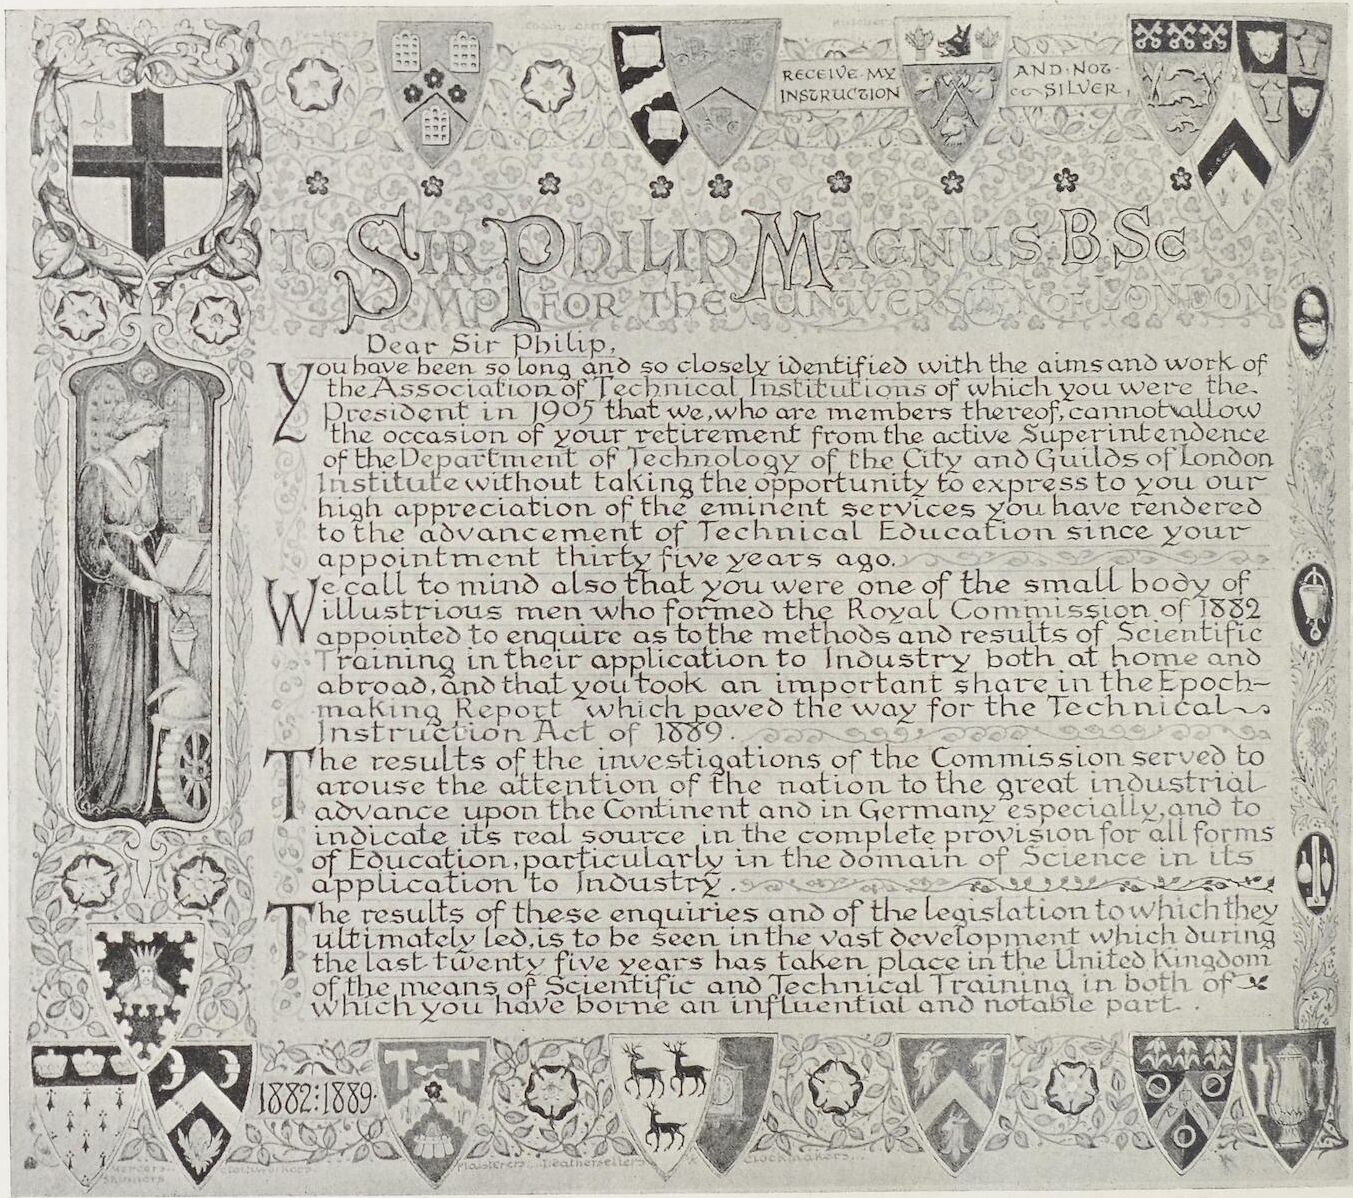 RECEIVE·MY
INSTRUCTION
AND·NOT·
SILVER,
TO SIR PHILIP MAGNUS. BSc
MP FOR THE UNIVERSITY OF LONDON
Dear Sir Philip,
You have been so long and so closely identified with the aims and work of
the Association of Technical Institutions of which you were the
President in 1905 that we, who are members thereof, cannot allow
the occasion of your retirement from the active Superintendence
of the Department of Technology of the City and Guilds of London
Institute without taking the opportunity to express to you our
high appreciation of the eminent services you have rendered
to the advancement of Technical Education since your
appointment thirty five years ago.
We call to mind also that you were one of the small body of
illustrious men who formed the Royal Commission of 1882
appointed to enquire as to the methods and results of Scientific
Training in their application to Industry both at home and
abroad, and that you took an important share in the Epoch-
making Report which paved the way for the Technical
Instruction Act of 1889.
The results of the investigations of the Commission served to
arouse the attention of the nation to the great industrial
advance upon the Continent and in Germany especially, and to
indicate its real source in the complete provision for all forms
of Education, particularly in the domain of Science in its
application to Industry.
The results of these enquiries and of the legislation to which they
ultimately led, is to be seen in the vast development which during
the last twenty five years has taken place in the United Kingdom
of the means of Scientific and Technical Training in both of
which you have borne an influential and notable part.
1882:1889.
Mercers...
Skinners
Clothworkers...
Plaisterers... Leathersellers
Clockmakers...